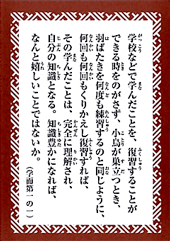 学校などで学んだことを、復習することが
できる時をのがさず、小鳥が巣立つとき、
羽ばたきを何度も練習するのと同じように、
何回も何回もくりかえし復習すれば、
その学んだことは、完全に理解され、
自分の知識となる。知識豊かになれば、
なんと嬉しいことではないか。
(学而第一の一)